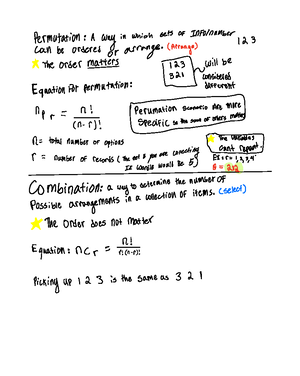 Permutation: A way in which sets of Info/number
can be ordered or arrange. (Arrange)
1 2 3
The order matters
1 2 3
3 2 1
will be
considered
different
Equation for permutation:
nPr = n!
(n-r)!
Permutation scenarios are more
specific in the sense of orders matter
n = total number of options
r = number of records (
)
The variables
can't repeat
Ex: r = 1, 2, 3, 4
Combination: a way to determine the number of
Possible arrangements in a collection of items. (select)
The Order does not matter
Equation: nCr = n!
r!(n-r)!
Picking up 1 2 3 is the same as 3 2 1